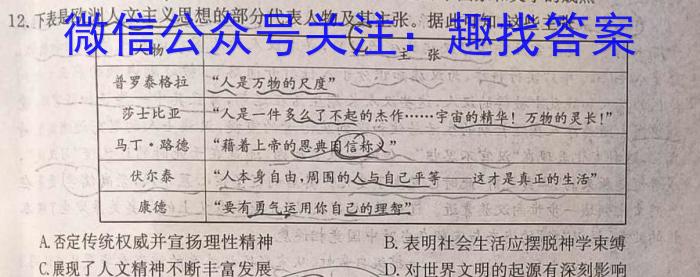 12.下表是欧洲人文主义思想的部分代表人物及其主张。据此可知,这些主张
微信公众号关注:趣找答案
人物 主 张
普罗泰格拉 “人是万物的尺度”
莎士比亚 “人是一件多么了不起的杰作……宇宙的精华!万物的灵长!”
马丁·路德 “藉着上帝的恩典因信称义”
伏尔泰 “人本身自由,周围的人与自己平等——这才是真正的生活”
康德 “要有勇气运用你自己的理智”
A.否定传统权威并宣扬理性精神 B.表明社会生活应摆脱神学束缚
C.展现了人文精神不断丰富发展 D.对世界文明的起源有深刻影响